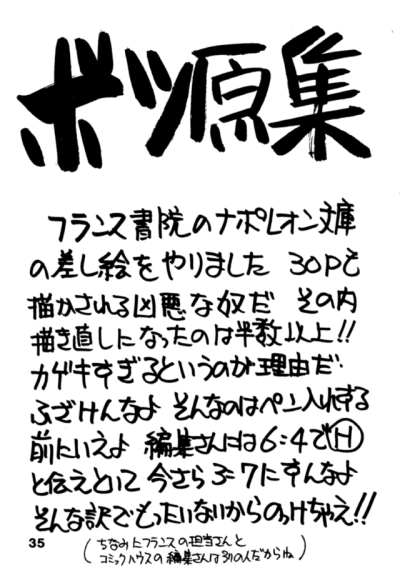 ボツ原集
フランス書院のナポレオン文庫
の差し絵をやりました 30Pも
描かされる凶悪な奴だ その内
描き直しになったのは半数以上!!
カゲキすぎるというのが理由だ.
ふざけんなよ そんなのはペン入れする
前にいえよ 編集さんには6:4でⒽ
と伝えといて 今さら3:7にすんなよ
そんな訳でもったいないからのっけちゃえ!!
35
(ちなみにフランスの担当さんと
コミックハウスの編集さんは別の人だからね)